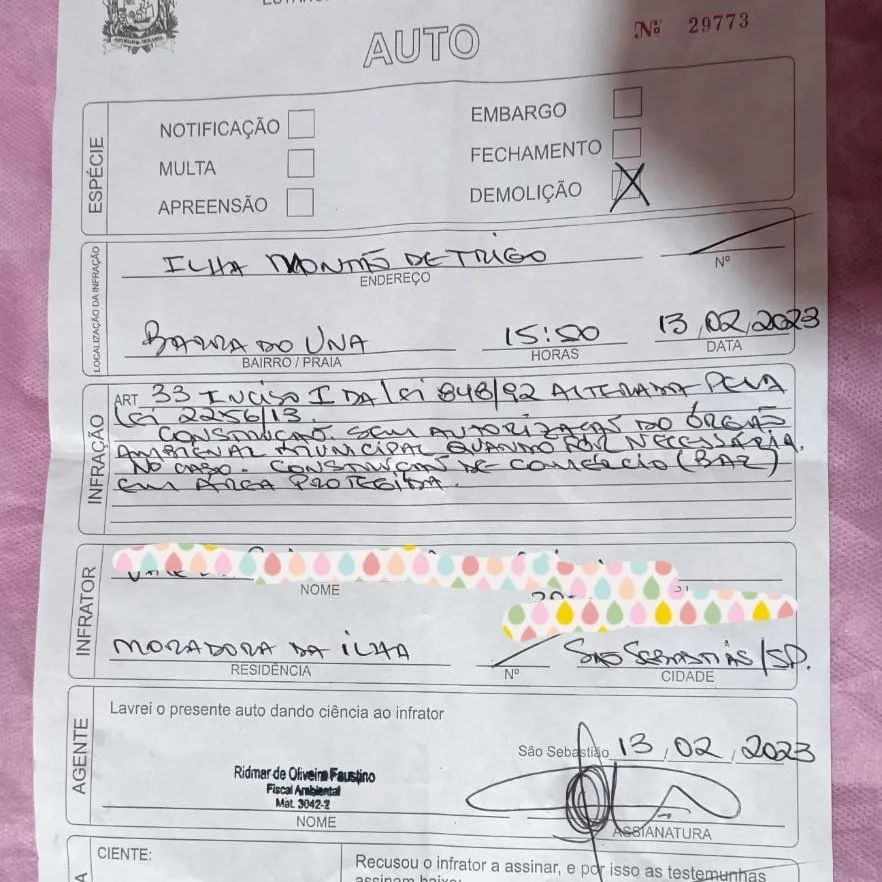 Nº 29773
AUTO
ESPÉCIE
NOTIFICAÇÃO
MULTA
APREENSÃO
EMBARGO
FECHAMENTO
DEMOLIÇÃO X
LOCALIZAÇÃO DA INFRAÇÃO
ILHA MONTÃO DE TRIGO
ENDEREÇO
Nº
BARRA DO UNA 15:50 13,02,2023
BAIRRO / PRAIA HORAS DATA
INFRAÇÃO
ART 33 INCISO I DA LEI 848/92 ALTERADA PELA
LEI 2256/13.
CONSTRUÇÃO SEM AUTORIZAÇÃO DO ÓRGÃO
AMBIENTAL MUNICIPAL QUANDO FOR NECESSÁRIA.
NO CASO. CONSTRUÇÃO DE COMÉRCIO (BAR)
EM ÁREA PROTEGIDA.
INFRATOR
NOME
MORADORA DA ILHA SÃO SEBASTIÃO/SP.
RESIDÊNCIA Nº CIDADE
AGENTE
Lavrei o presente auto dando ciência ao infrator
São Sebastião 13,02,2023
Ridmar de Oliveira Faustino
Fiscal Ambiental
Mat. 3042-2
NOME
ASSIANATURA
CIENTE:
Recusou o infrator a assinar, e por isso as testemunhas
assinam baixo: